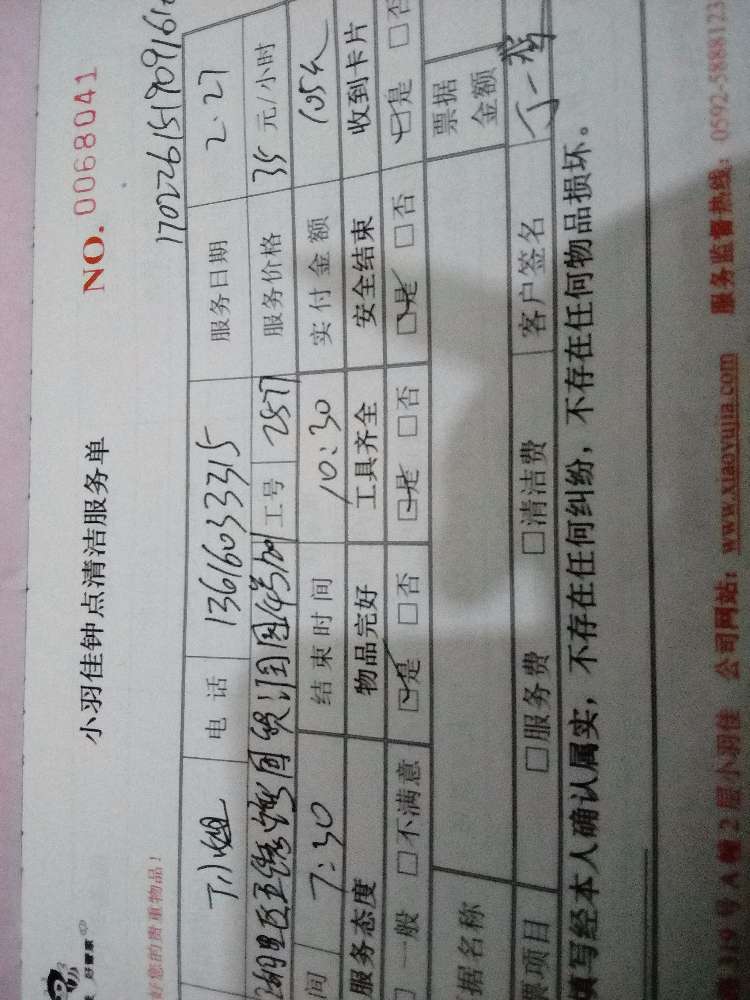 小羽佳钟点清洁服务单
NO. 0068041
好您的贵重物品！
丁小姐 电话 13616033315 服务日期 2.27
工号 2577 服务价格 35 元/小时
间 7:30 结束时间 10:30 实付金额 105元
服务态度 物品完好 工具齐全 安全结束 收到卡片
□一般 □不满意 □是 □否 □是 □否 □是 □否 □是 □否
据名称 票据金额
票项目 □服务费 □清洁费 客户签名
填写经本人确认属实，不存在任何纠纷，不存在任何物品损坏。
319号A幢2层小羽佳 公司网站：www.xiaoyujia.com 服务监督热线：0592-5888123